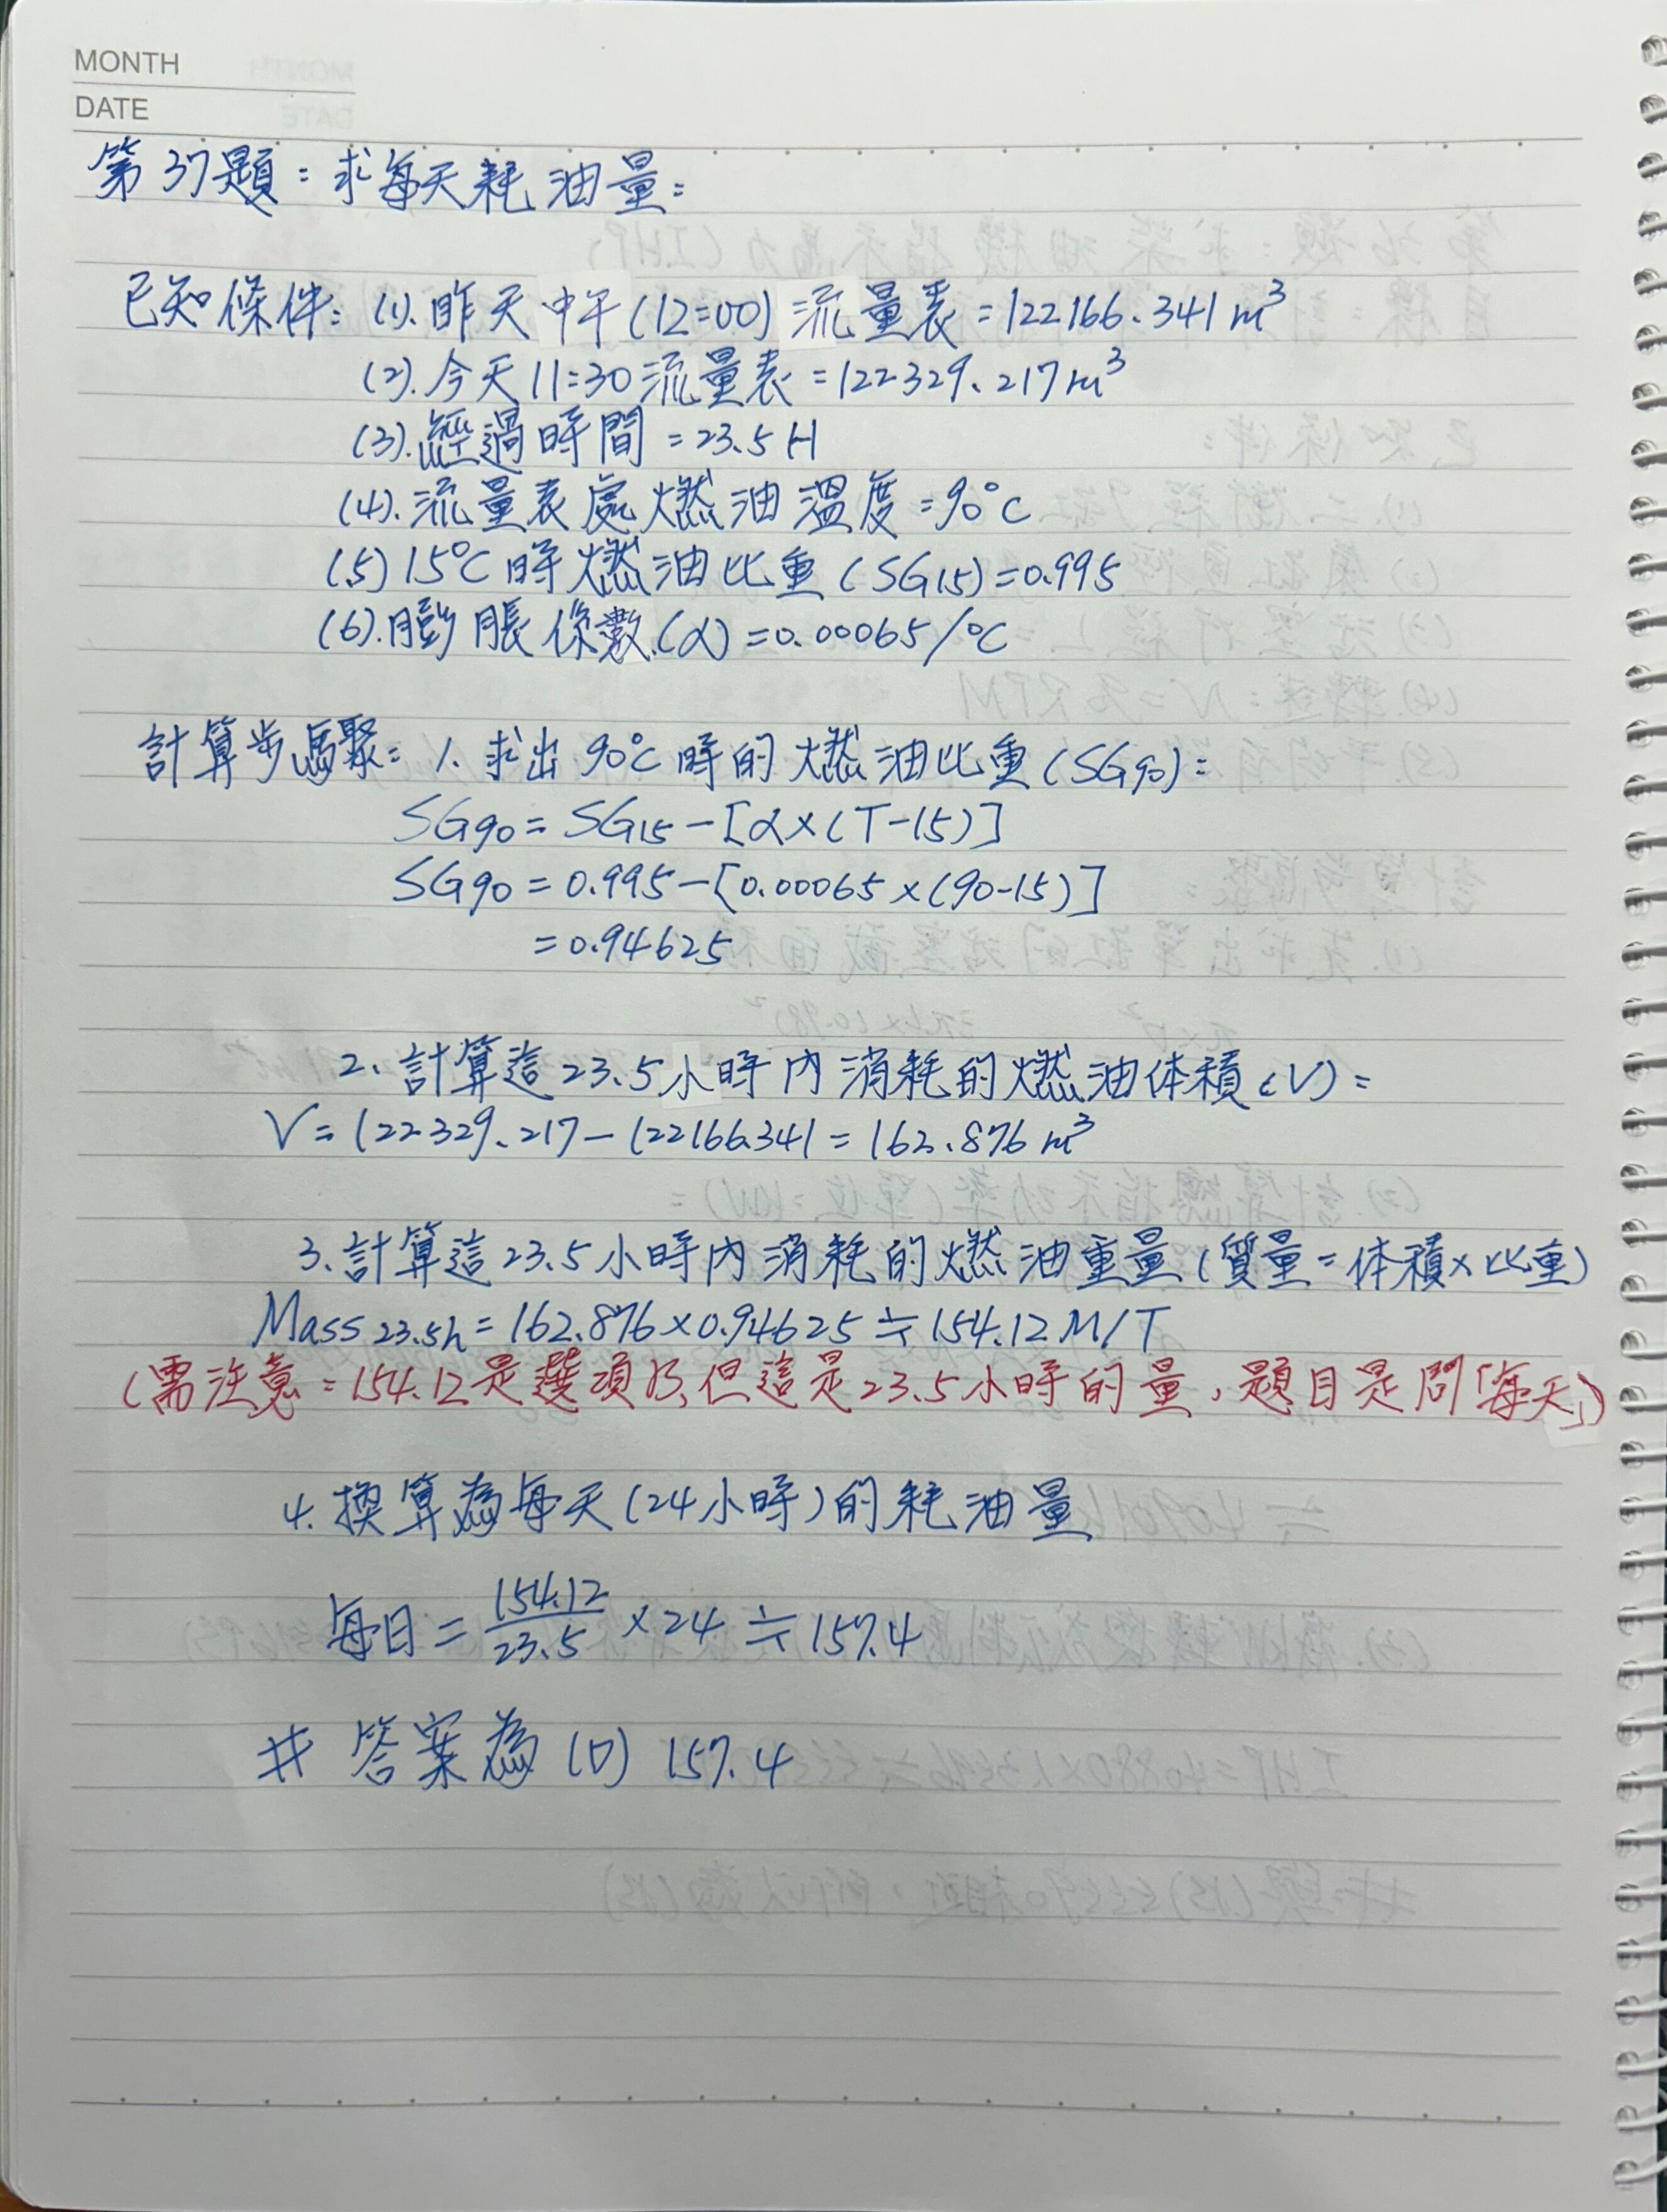 MONTH
DATE
第37題：求每天耗油量：
已知條件：(1).昨天中午(12:00)流量表=122166.341m³
(2).今天11:30流量表=122329.217m³
(3).經過時間=23.5H
(4).流量表處燃油溫度=90°C
(5)15°C時燃油比重(SG15)=0.995
(6).膨脹係數(α)=0.00065/°C
計算步驟：1.求出90°C時的燃油比重(SG90)：
SG90=SG15-[α×(T-15)]
SG90=0.995-[0.00065×(90-15)]
=0.94625
2.計算這23.5小時內消耗的燃油体積(V)：
V=122329.217-122166.341=162.876m³
3.計算這23.5小時內消耗的燃油重量(質量=体積×比重)
Mass 23.5h=162.876×0.94625≒154.12M/T
(需注意：154.12是選項B,但這是23.5小時的量,題目是問「每天」)
4.換算為每天(24小時)的耗油量
每日=154.12/23.5×24≒157.4
#答案為(D)157.4